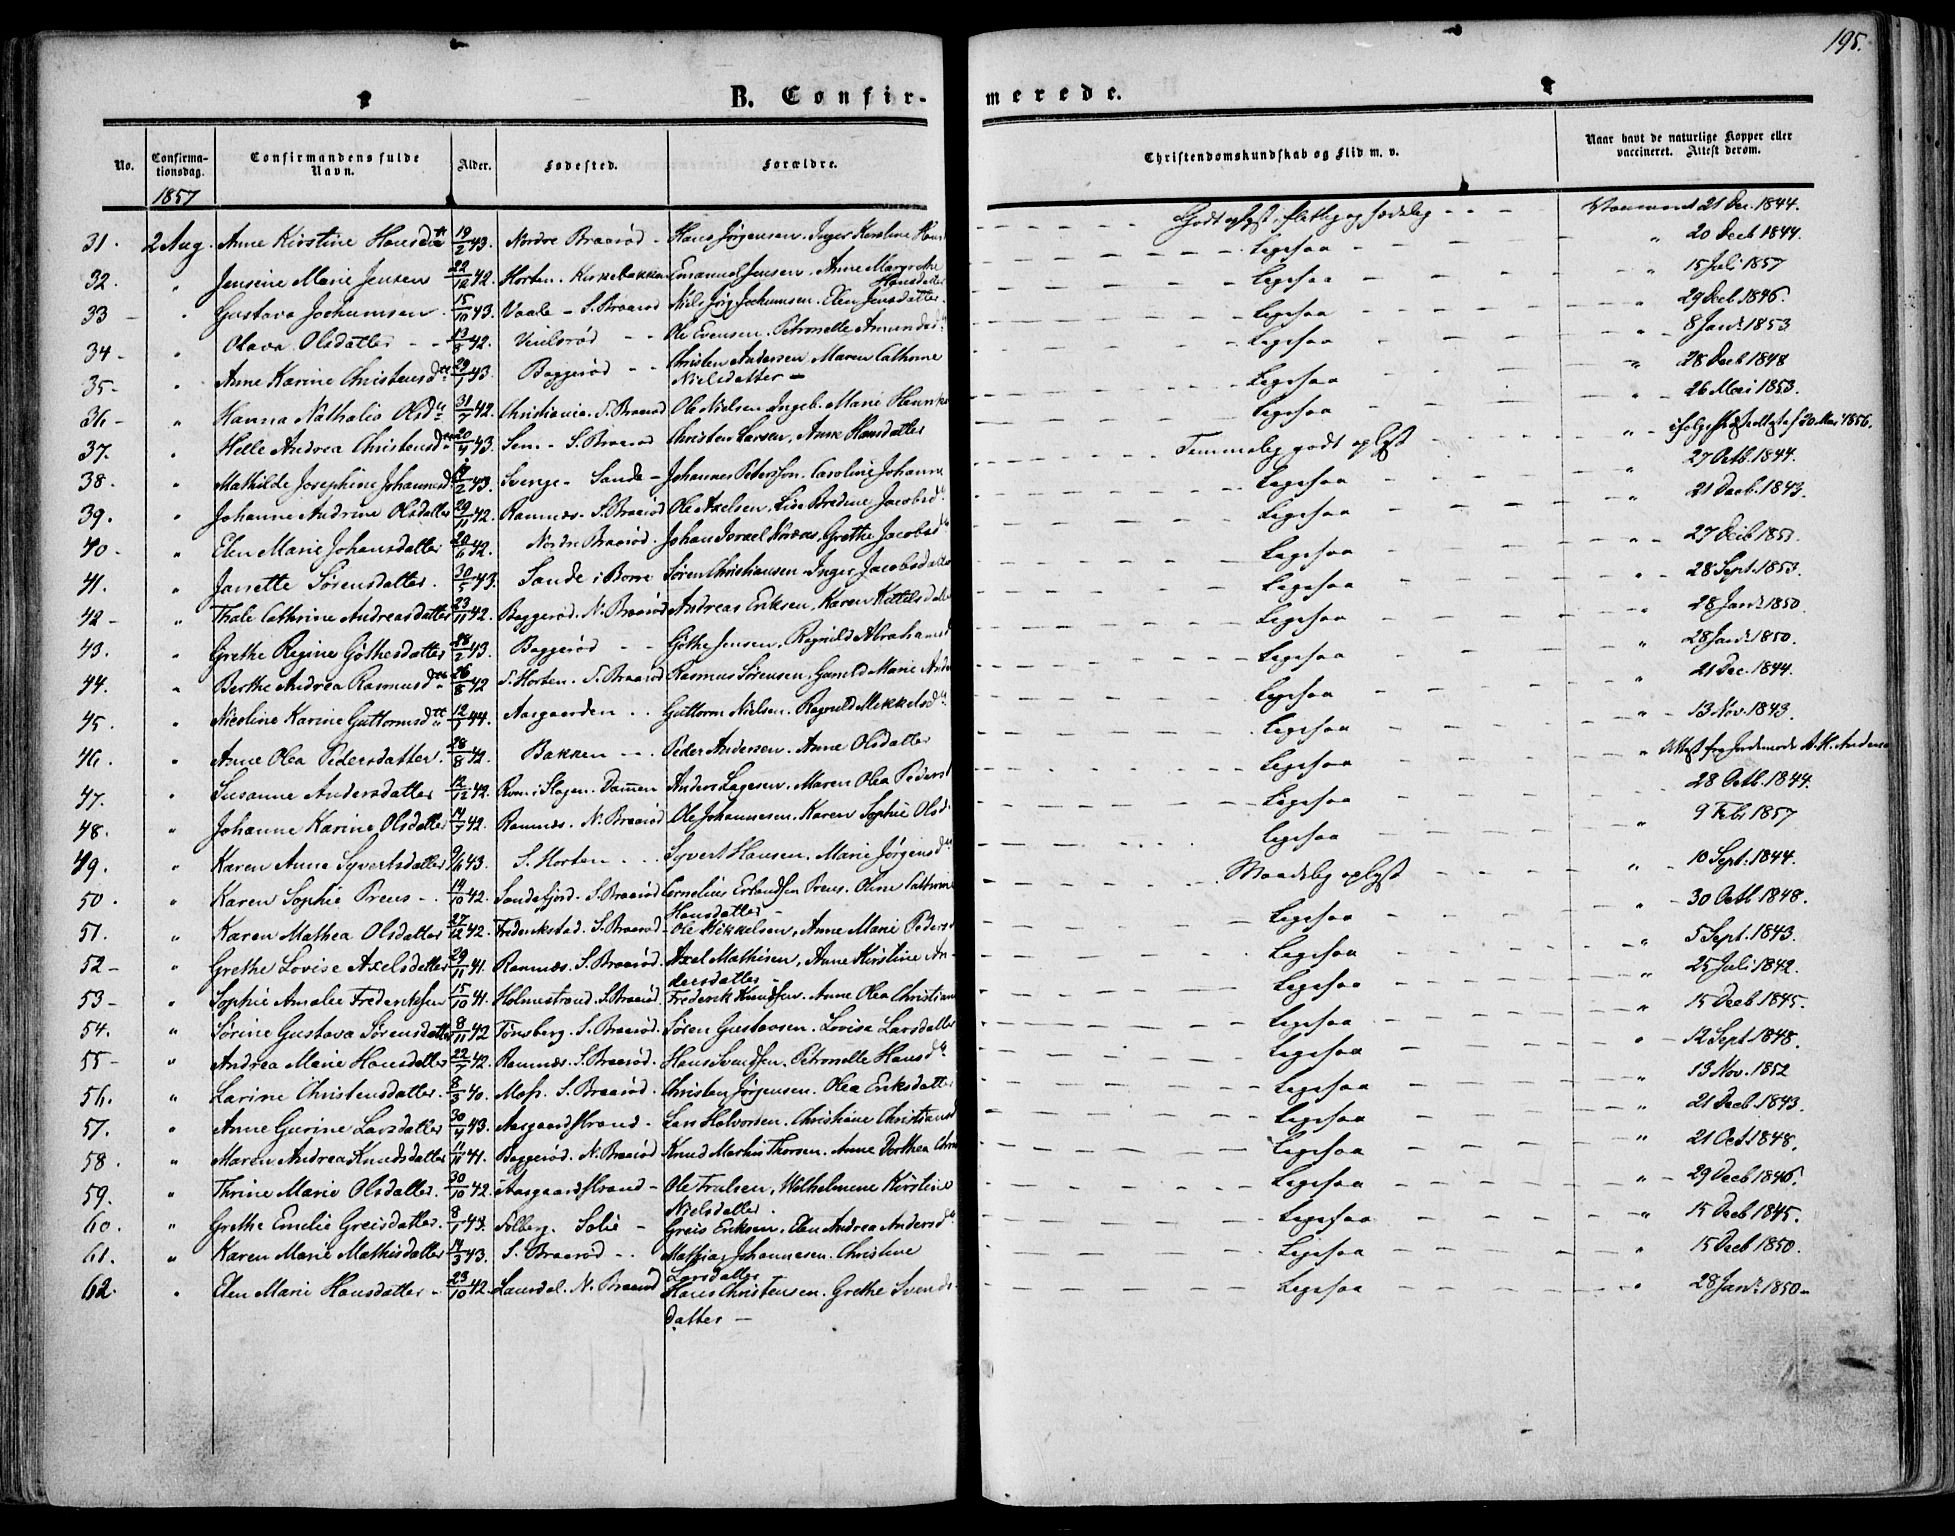 195.
B. Confirmerede.
No. Confirmationsdag. Confirmandens fulde Navn. Alder. Fødested. Forældre. Christendomskundskab og Flid m. v. Naar havt de naturlige Kopper eller vaccineret. Attest derom.
1857
31. 2 Aug. Anne Kirstine Hansdtt 19/2 43. Nordre Braarød - Hans Jørgensen. Inger Karoline Godt oplyst, flittig og sædelig - Vaccineret 21 Dec. 1844.
32. " Jensine Marie Jensen 22/12 42. Horten. Kirkebakken Emanuel Jensen. Anne Margrethe Hansdatter Ligesaa " 20 Decb 1844.
33 - " Gustava Jochumsen. 15/10 43. Vaale - S. Braarød Niels Jørg. Jochumsen. Elen Jensdatter. Ligesaa " 15 Juli 1857
34 - " Olava Olsdatter - - 13/8 42. - - Ole Evensen. Petronelle Amundsd. Ligesaa " 29 Decb 1846.
35 - " Anne Karine Christensdtt 29/1 43. Baggerød - - Christen Andersen. Maren Cathrine Nielsdatter - Ligesaa " 8 Jan. 1853
36 - " Hanna Nathalia Olsd. 31/7 42. Christiania. S. Braarød Ole Nielsen. Ingeb. Marie Ligesaa " 28 Decb 1848
37. " Helle Andrea Christensdtt 20/4 43. Sem - S. Braarød Christen Larsen, Anne Hansdatter Ligesaa " 26 Mai 1853.
38. " Mathilde Josephine Johannesd. 2 43. Sverige - Sande - Johannes Petersson. Caroline Johann Temmelig godt oplyst " 1856.
39. " Johanne Andrine Olsdatter 29/11 42. Ramnæs. S. Braarød Ole Axelsen, Lise Bredine Jacobsd. Ligesaa " 27 Octb. 1844.
40 - " Elen Marie Johansdatter 20/6 42. Nordre Braarød. Johan Israel Grethe Jacobsd. Ligesaa " 21 Decb. 1843.
41. " Janette Sørensdatter. 30/5 43. Sande i Borre Søren Christiansen. Inger Jacobsdatter Ligesaa " 27 Decb
42 - " Thale Cathrine Andreasdatter 23/11 42. Baggerød. N. Braarød Andreas Eriksen, Karen Kittilsdatter Ligesaa " 28 Sept. 1853.
43. " Grethe Regine Göthesdatter 28/2 43. Baggerød - - Göthe Jensen. Ragnild Abrahamsd Ligesaa " 28 Jan. 1850.
44. " Berthe Andrea Rasmusdtt 26/8 42 S. Horten. S. Braarød Rasmus Sørensen. Gunild Marie Ligesaa " 28 Jan. 1850.
45. " Nicoline Karine Guttormsdtt 12/1 44. Aasgaarden - - Guttorm Nielsen. Ragnild Mikkelsd. Ligesaa " 21 Dec. 1844.
46. " Anne Olea Pedersdatter. 28/8 42. Bakken - - Peder Andersen. Anne Olsdatter Ligesaa " 13 Nov. 1843.
47. " Susanne Andersdatter 12/12 42. i Slagen. Anders Lagesen. Maren Olea Pedersd Ligesaa " Attest fra Jordemoder A. K. Anders
48. " Johanne Karine Olsdatter 14/7 42. Ramnæs. N. Braarød Ole Johannesen. Karen Sophie Olsd. Ligesaa 28 Octb. 1844.
49. " Karen Anne Syvertsdatter 9/6 43. S. Horten - - Syvert Hansen. Marie Jørgensd. Ligesaa " 9 Feb. 1857
50. " Karen Sophie Preus - 14/10 42. Sandefjord. S. Braarød Cornelius Erlandsen Preus. Oline Cathrine Hansdatter - Maadelig oplyst " 10 Sept. 1844.
51. " Karen Mathea Olsdatter 27/12 42. Frederikstad. S. Braarød - Ole Mikkelsen, Anne Marie Pedersd Ligesaa " 30 Octb 1848.
52 - " Grethe Lovise Axelsdatter 29/11 41. Ramnæs. S. Braarød. Axel Mathisen, Anne Kirstine Andersdatter - Ligesaa " 5 Sept. 1843.
53 - " Sophie Amalie Frederiksen 15/10 41. Holmestrand. S. Braarød. Frederik Knudsen. Anne Olea Christians Ligesaa " 25 Juli 1842.
54. " Sørine Gustava Sørensdatter 8/11 42 Tønsberg. S. Braarød. Søren Gustavsen. Lovise Larsdatter Ligesaa " 15 Decb 1845.
55 - " Andrea Marie Hansdatter 22/7 42. Ramnæs. S. Braarød. Hans Svendsen. Petronelle Hansd. Ligesaa " 12 Sept 1848.
56. " Larine Christensdatter. 8/3 40. Moss. S. Braarød. Christen Jørgensen. Olea Eriksdatter Ligesaa " 13 Nov. 1852
57. " Anne Gurine Larsdatter 30/4 43. Aasgaardstrand - Lars Halvorsen. Christiane Christiansd Ligesaa " 21 Decb 1843.
58. " Maren Andrea Knudsdatter 11/11 41. Baggerød. N. Braarød Knud Martin Thorsen. Anne Dorthea Chri Ligesaa " 21 Oct 1848.
59. " Thrine Marie Olsdatter. 30/10 42. Aasgaardstrand - Ole Trulsen, Wilhelmine Kirstine Nielsdatter. Ligesaa " 29 Decb 1846.
60. " Grethe Emelie Greisdatter. 8/1 43. Solie - Greis Eriksen. Elen Andrea Andersd. Ligesaa " 15 Decb 1845.
61. " Karen Marie Mathisdatter 14/3 43. S. Braarød - - Mathias Johannesen. Christine Larsdatter Ligesaa " 15 Decb 1850.
62. " Elen Marie Hansdatter - 23/10 42. N. Braarød Hans Christensen. Grethe Svendsdatter - Ligesaa " 28 Jan. 1850 -